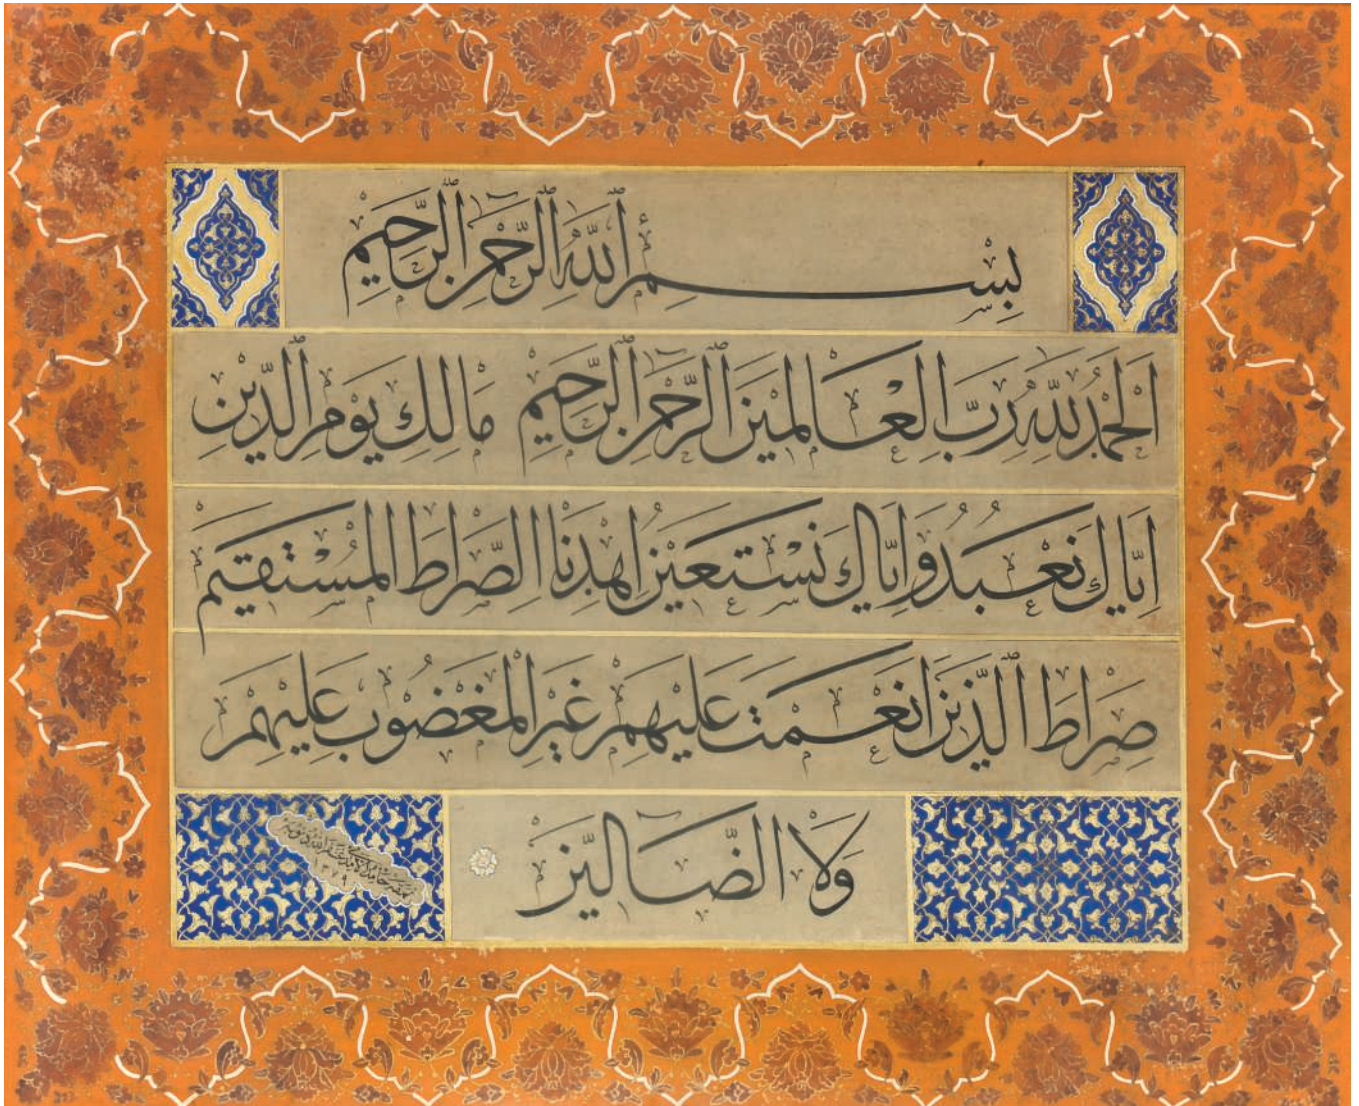 بِسْمِ اللّٰهِ الرَّحْمٰنِ الرَّحِيمِ
اَلْحَمْدُ لِلّٰهِ رَبِّ الْعَالَمِينَ الرَّحْمٰنِ الرَّحِيمِ مَالِكِ يَوْمِ الدِّينِ
اِيَّاكَ نَعْبُدُ وَاِيَّاكَ نَسْتَعِينُ اِهْدِنَا الصِّرَاطَ الْمُسْتَقِيمَ
صِرَاطَ الَّذِينَ اَنْعَمْتَ عَلَيْهِمْ غَيْرِ الْمَغْضُوبِ عَلَيْهِمْ
وَلَا الضَّالِّينَ
حامد الآمدي
١٣٧٩